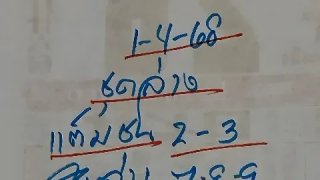 1-4-68
ชุดล่าง
แต้มชน 2-3
7-8-9